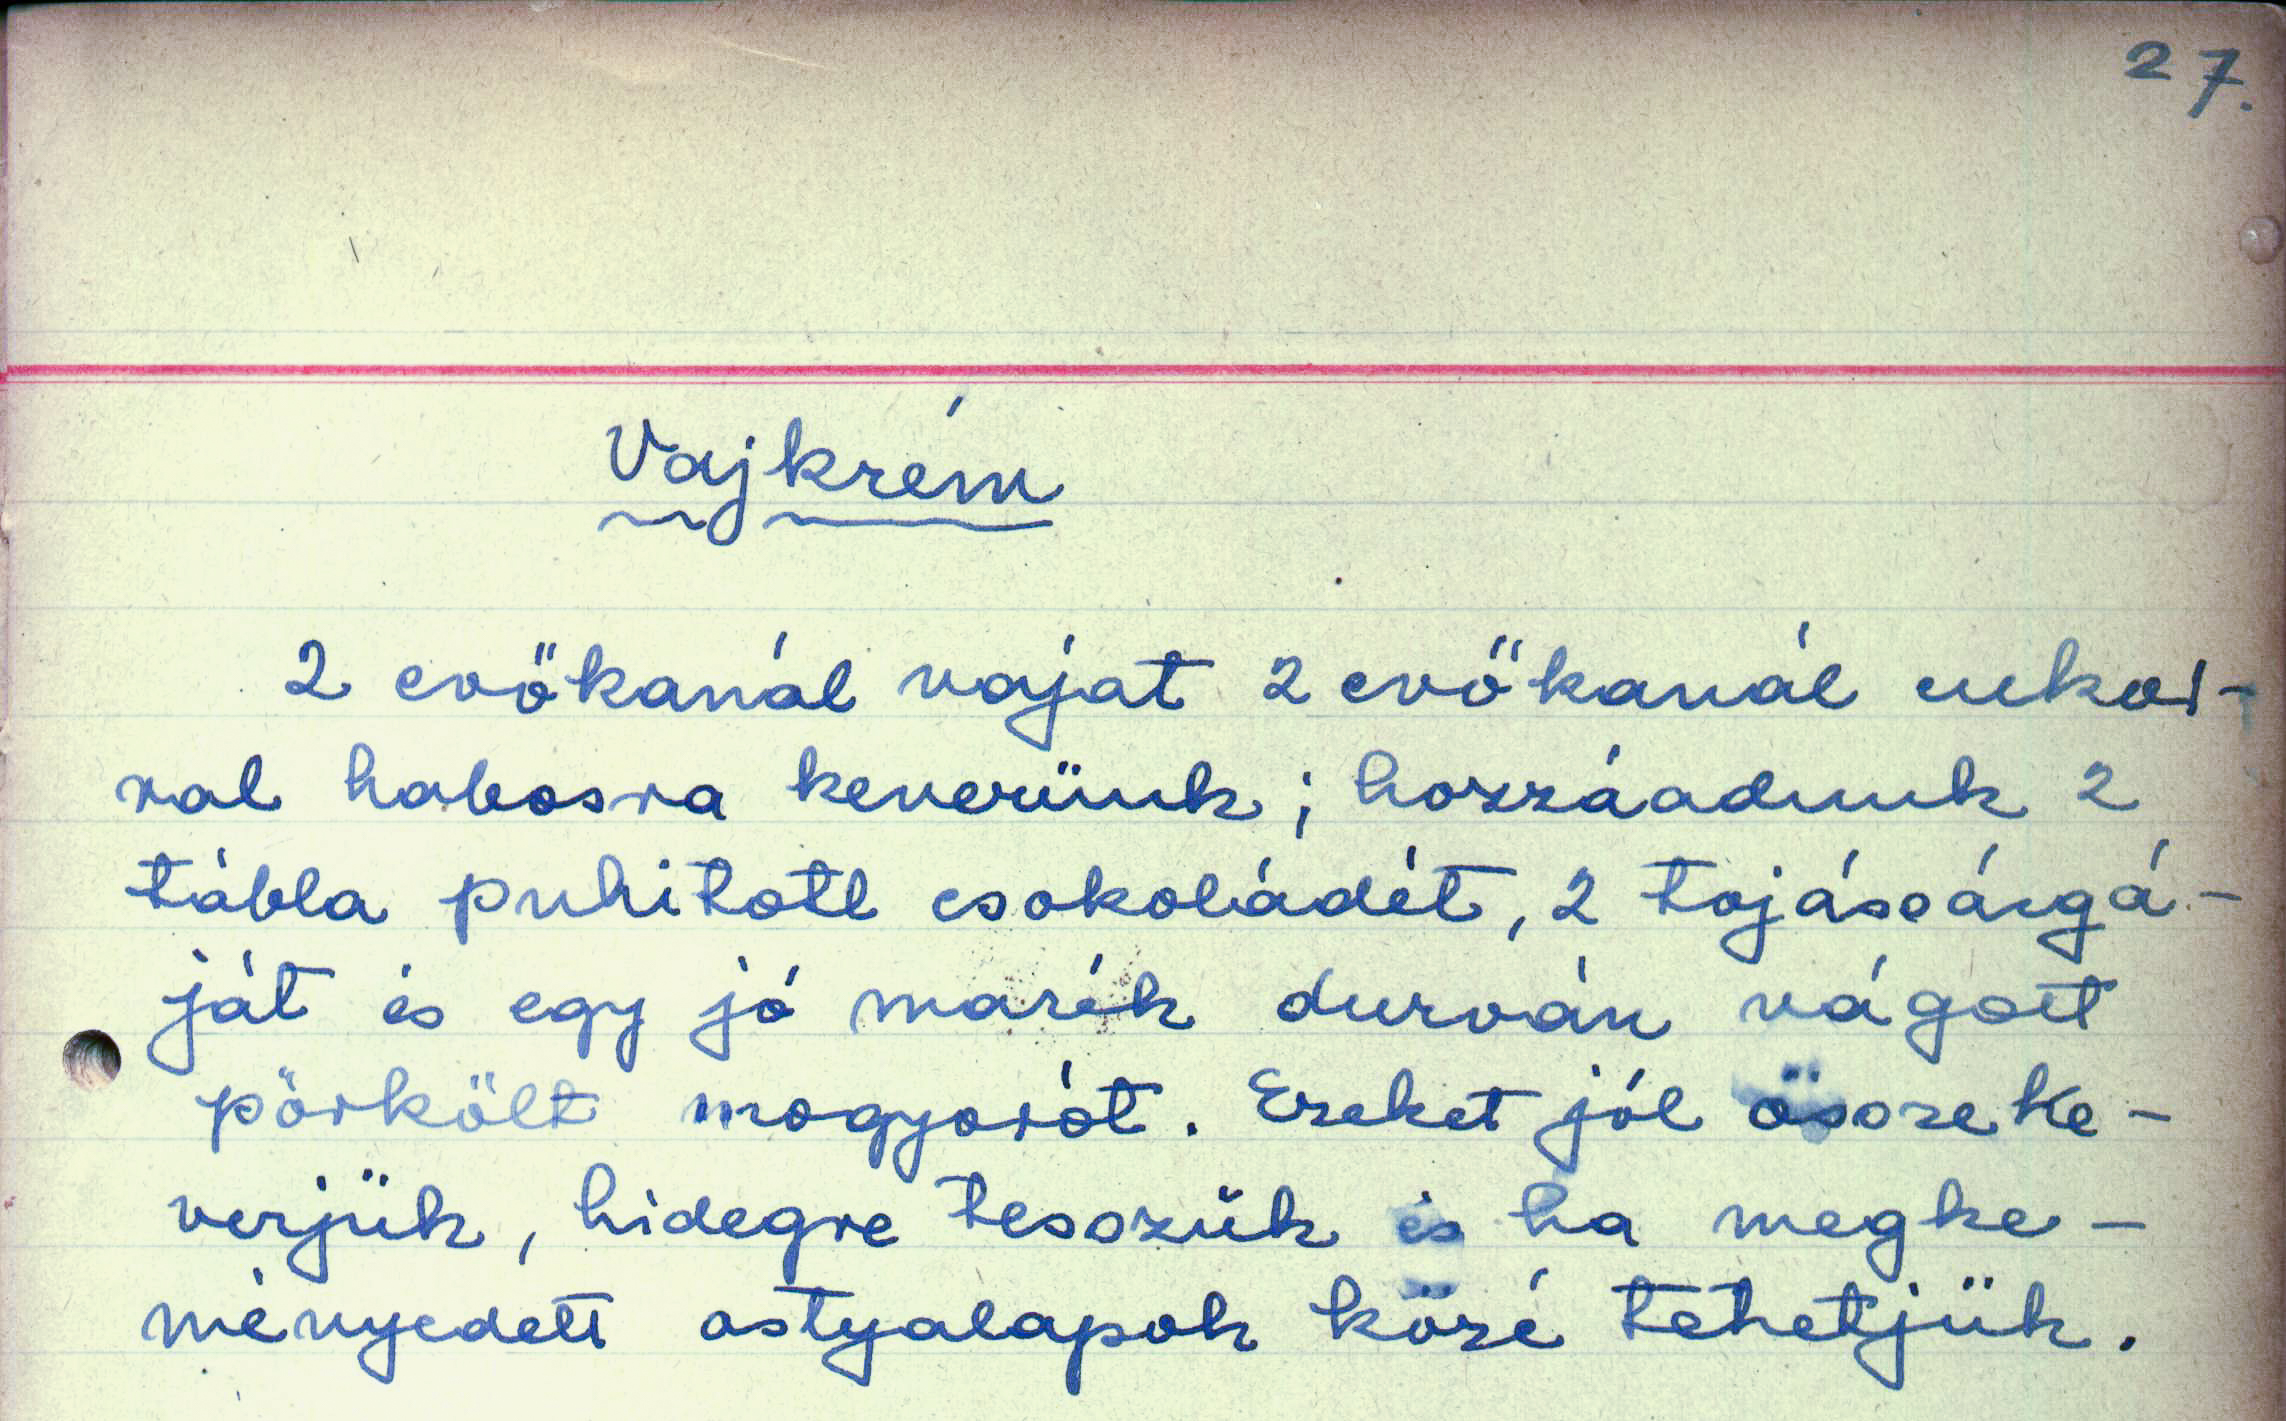 27.
Vajkrém
2 evőkanál vajat 2 evőkanál cukor-
ral habosra keverünk; hozzáadunk 2
tábla puhitott csokoládét, 2 tojássárgá-
ját és egy jó marék durván vágott
pörkölt mogyorót. Ezeket jól összeke-
verjük, hidegre tesszük és ha megke-
ményedett ostyalapok közé tehetjük.